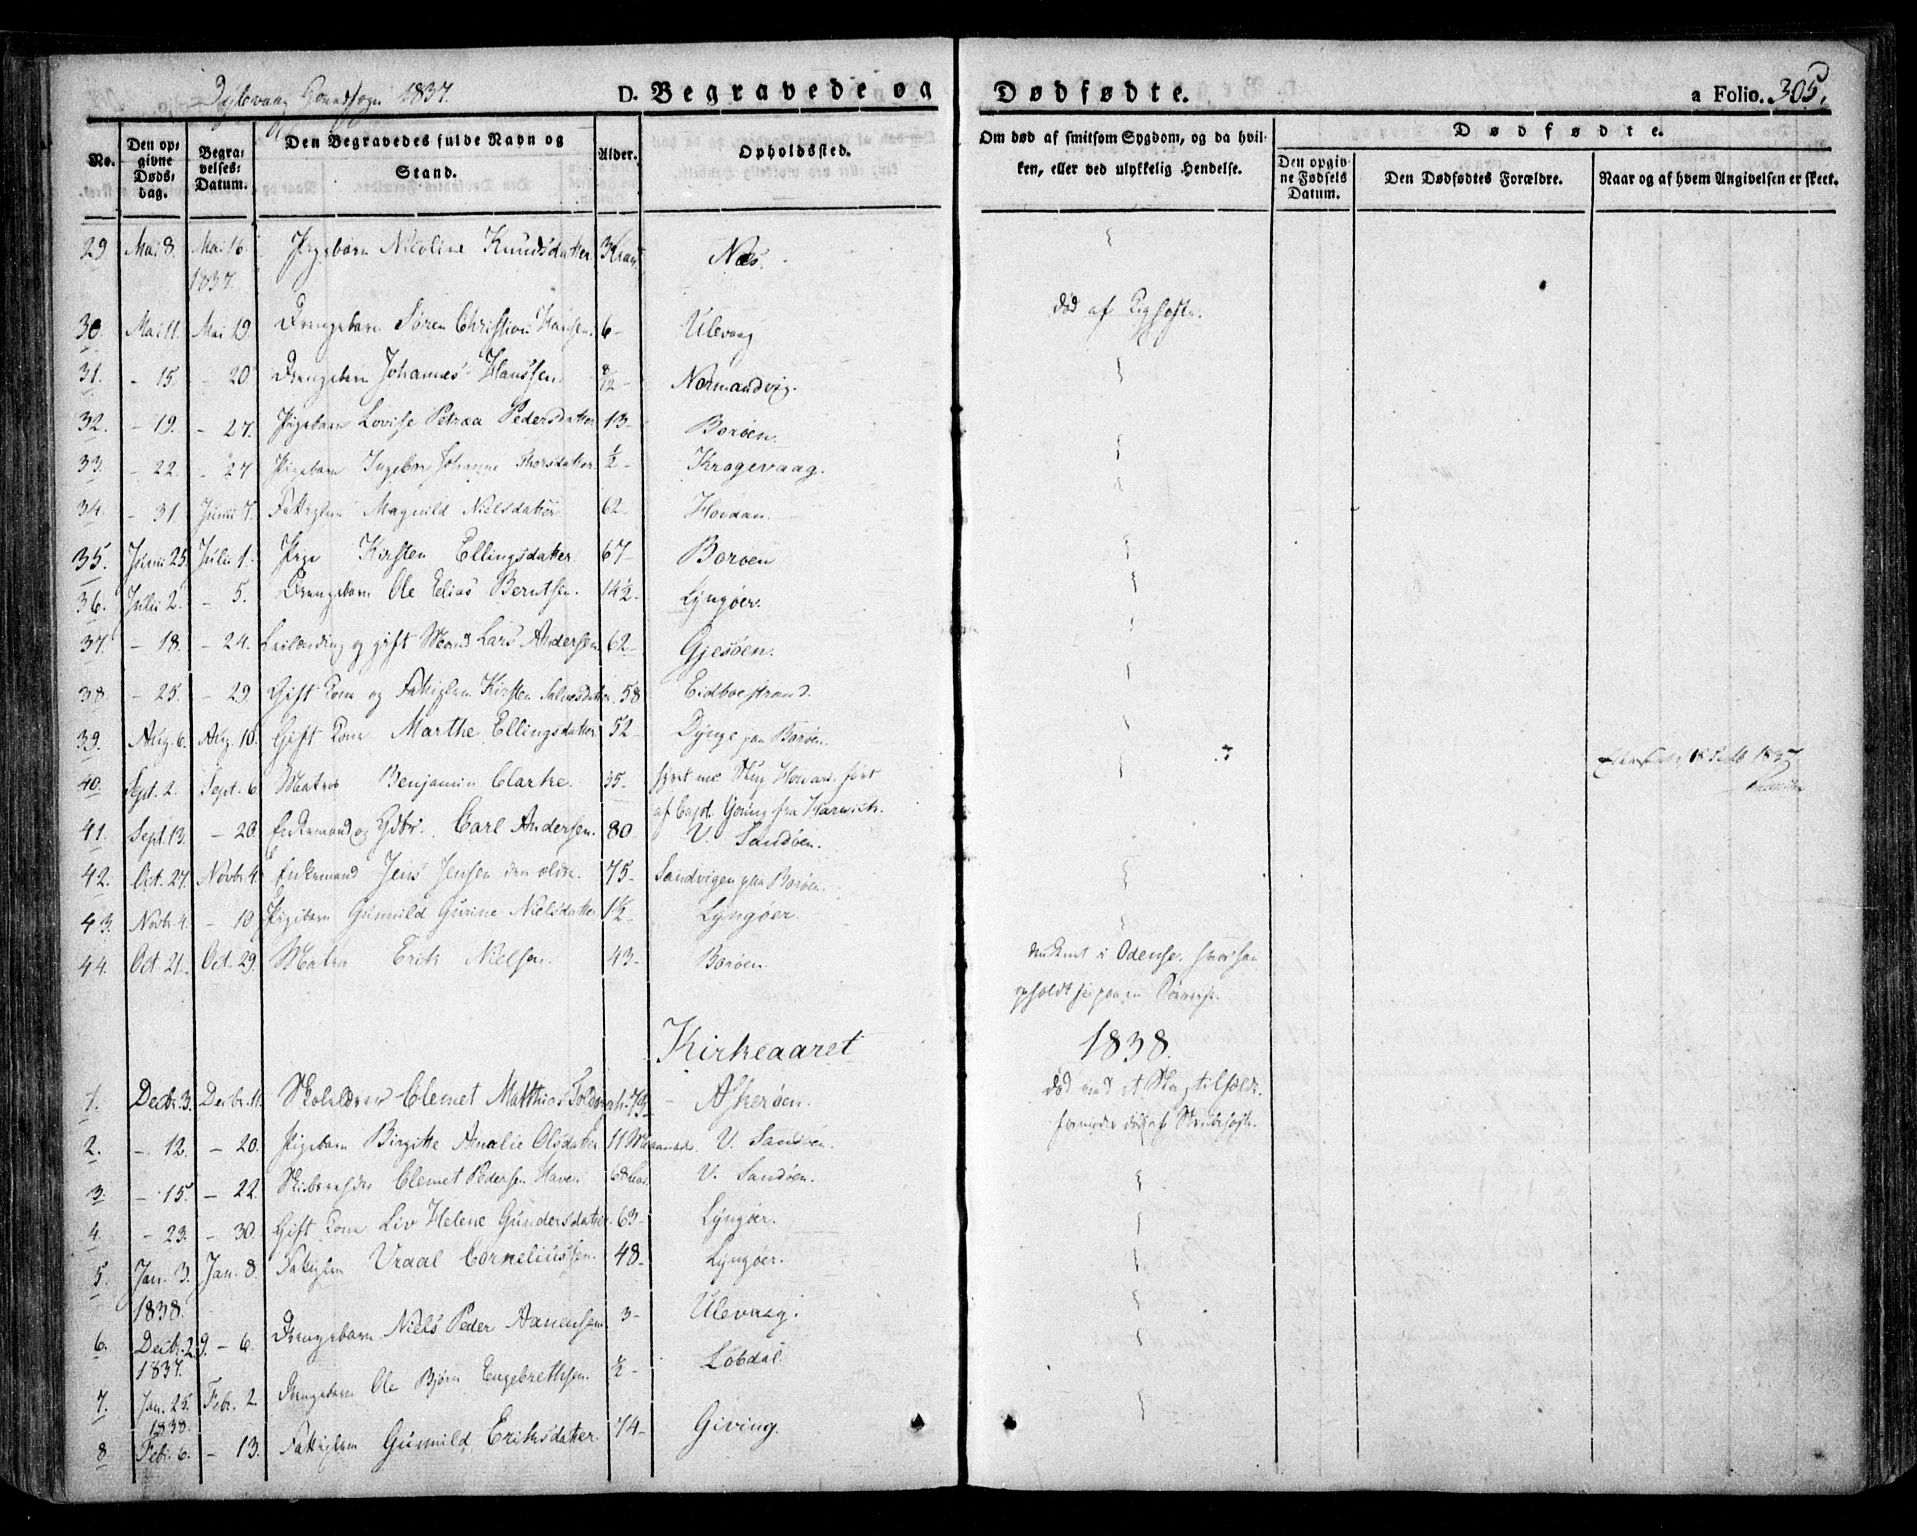 1837.
D. Begravede og Dødfødte. a Folio. 305.
No. Den opgivne Døds-dag. Begravelses-Datum. Den Begravedes fulde Navn og Stand. Alder. Opholdssted. Om død af smitsom Sygdom, og da hvilken, eller ved ulykkelig Hendelse. Dødfødte. Den opgivne Fødsels Datum. Den Dødfødtes Forældre. Naar og af hvem Angivelsen er skeet.
29 Mai 8. Mai 16 1837. Pigebarn Nicoline Knudsdatter 3 Næs.
30. Mai 11. Mai 19. Drengebarn Søren Christian Hansen. 6 - Ulevaag død af
31. - 15. - 20. Drengebarn Johannes Hanssen. 8/12 - Normandvig.
32. - 19. - 27. Pigebarn Lovise Petræa Pedersdatter 13 - Borøen.
33. - 22. - 27 Pigebarn Ingebor Johanne Thorsdatter. 1/2 - Kragevaag.
34. - 31 Junii 7. Fattiglem Magnild Nielsdatter 62 -
35. Junii 25. Julii 1. Pige Kirsten Ellingsdatter 67 - Borøen
36. Julii 2. - 5. Drengebarn Ole Elias Berntsen. 14 1/2 - Lyngøer.
37. - 18. - 24. og gift Mand Lars Andersen 62 - Gjesøen.
38. - 25. - 29. Gift Kone og Fattiglem Kirsten 58 Eidboestrand.
39. Aug. 6. Aug. 10. Gift Kone Marthe Ellingsdatter 52 - Dynge paa Borøen.
40. Sept. 2. Sept. 6 Matros Benjamin Clarke. 35. - ført
af Capt. Young fra Harwich.
41. Sept. 13. - 20. Enkemand og Carl Andersen. 80 V. Sandøen.
42. Oct. 27. Novbr. 4. Enkemand Jens Jensen den ældre. 75 - Sandvigen paa Borøen.
43. Novbr. 4. - 10. Pigebarn Gunnild Gurine Nielsdatter 1 1/2 - Lyngøer
44. Oct. 21. Oct. 29. Matros Erik Nielsen. 43 - Borøen. i Odense, hvor han
opholdt sig paa en
Kirkeaaret 1838.
1. Decbr. 3. Decbr. 11. Clemet Matthias 79 - Askerøen. død
2. - 12. - 20. Pigebarn Birgitte Amalie Olsdatter 11 Maaneder. V. Sandøen. formodes død af
3. - 15. - 22. Clemet Pedersen Haven 68 V. Sandøen.
4. - 23. - 30. Gift Kone Liv Helene Gundersdatter. 63 - Lyngøer.
5. Jan. 3. 1838. Jan. 8. Fattiglem Vraal Corneliussen. 48 - Lyngøer.
6. Decbr. 29. 1837. - 6. Drengebarn Niels Peder Aanensen 3 - Ulevaag.
7. Jan. 25. 1838. Febr. 2. Drengebarn Ole Bjørn Engebrethsen. 1/2 - Løbdal.
8 Febr. 6. - 13. Fattiglem Gunnild Eriksdatter 74 - Giving.